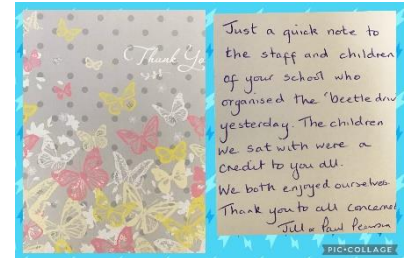 Thank Yo
Just a quick note to
the staff and children
of your school who
organised the 'beetle driv
yesterday. The children
we sat with were a
credit to you all.
We both enjoyed ourselves.
Thank you to all concerned
Jill & Paul Pearson
PIC•COLLAGE